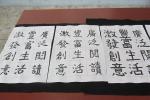 廣泛閱讀
豐富生活
激發創意
廣泛閱讀
豐富生活
激發創意
廣泛閱讀
豐富生活
激發創意